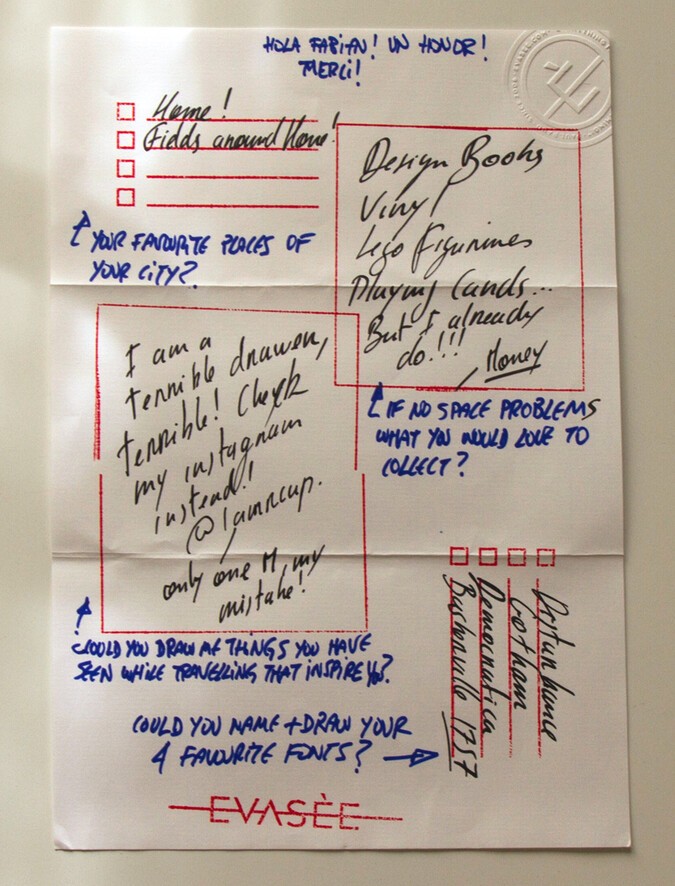 HOLA FABIAN! UN HONOR!
MERCI!
Home!
Fields around Home!
YOUR FAVOURITE PLACES OF
YOUR CITY?
Design Books
Vinyl
Lego Figurines
Playing Cards...
But I already
do!!!
, Money
IF NO SPACE PROBLEMS
WHAT YOU WOULD LOVE TO
COLLECT?
I am a
terrible drawer,
terrible! Check
my instagram
instead!
@iamrcup.
only one M, my
mistake!
COULD YOU DRAW ME THINGS YOU HAVE
SEEN WHILE TRAVELLING THAT INSPIRE YOU?
Disturbance
Gotham
Democratica
Baskerville 1757
COULD YOU NAME + DRAW YOUR
4 FAVOURITE FONTS?
EVASÈE